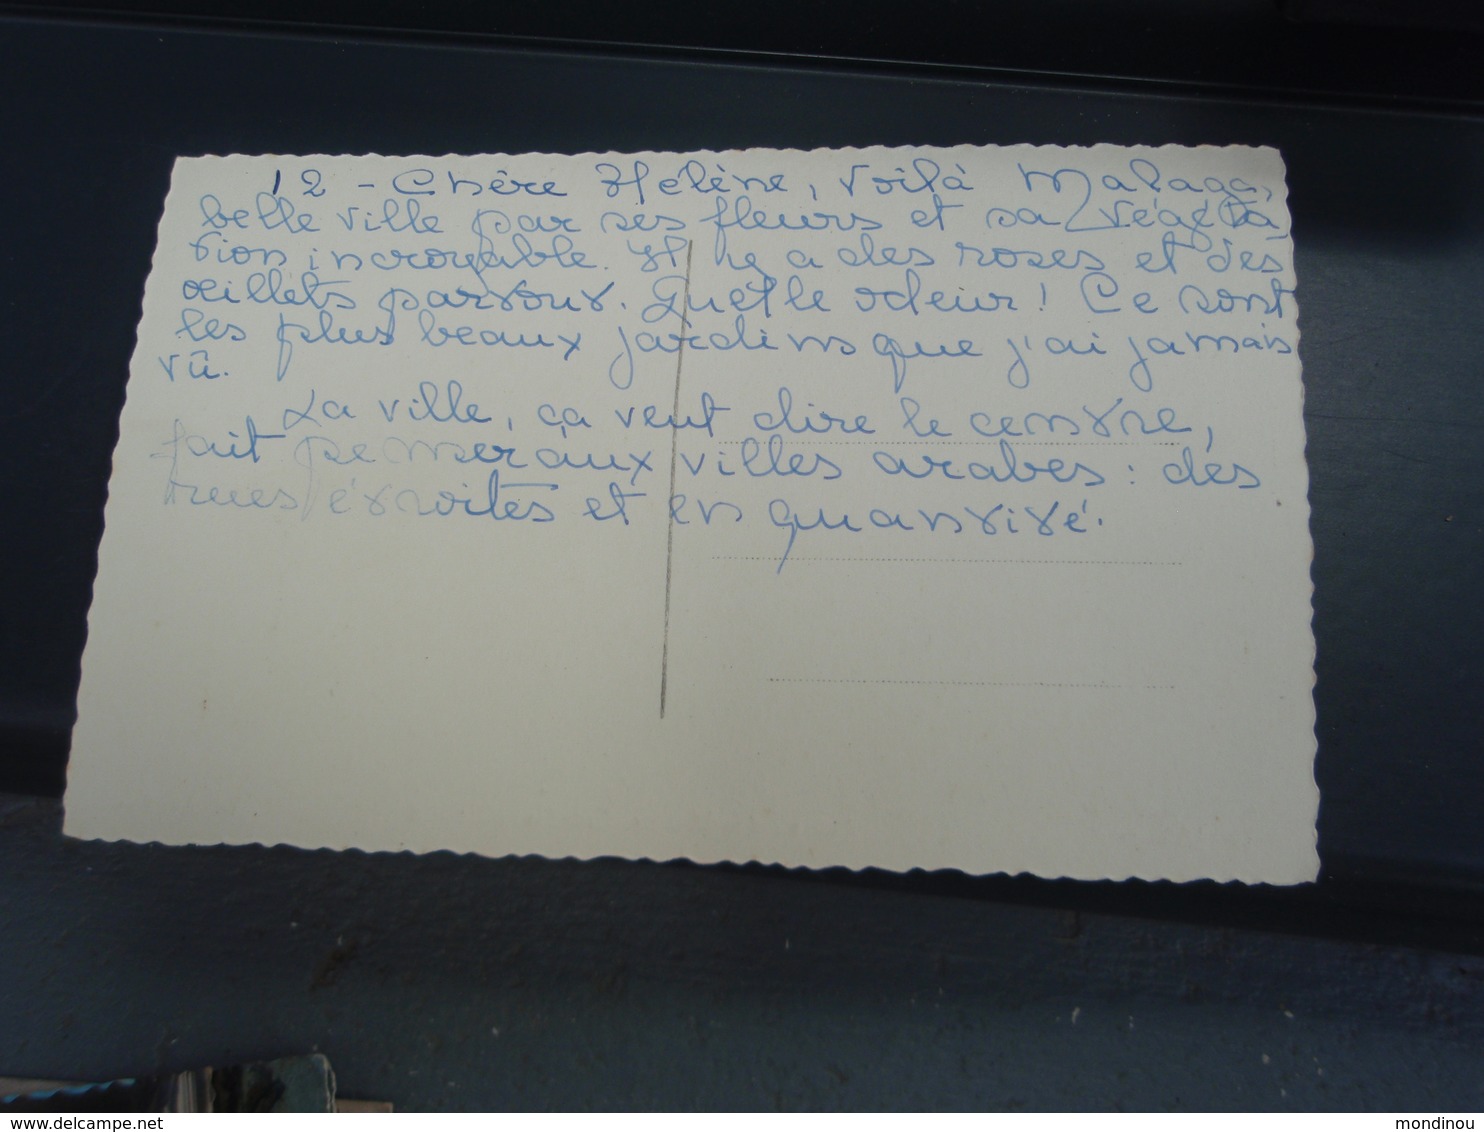 12 - Chère Hélène, voilà Malaga,
belle ville par ses fleurs et sa végéta
tion incroyable. Il y a des roses et des
œillets partout. Quelle odeur ! Ce sont
les plus beaux jardins que j'ai jamais
vû.
La ville, ça veut dire le centre,
fait penser aux villes arabes : des
rues étroites et en quantité.
delcampe.net
mondinou